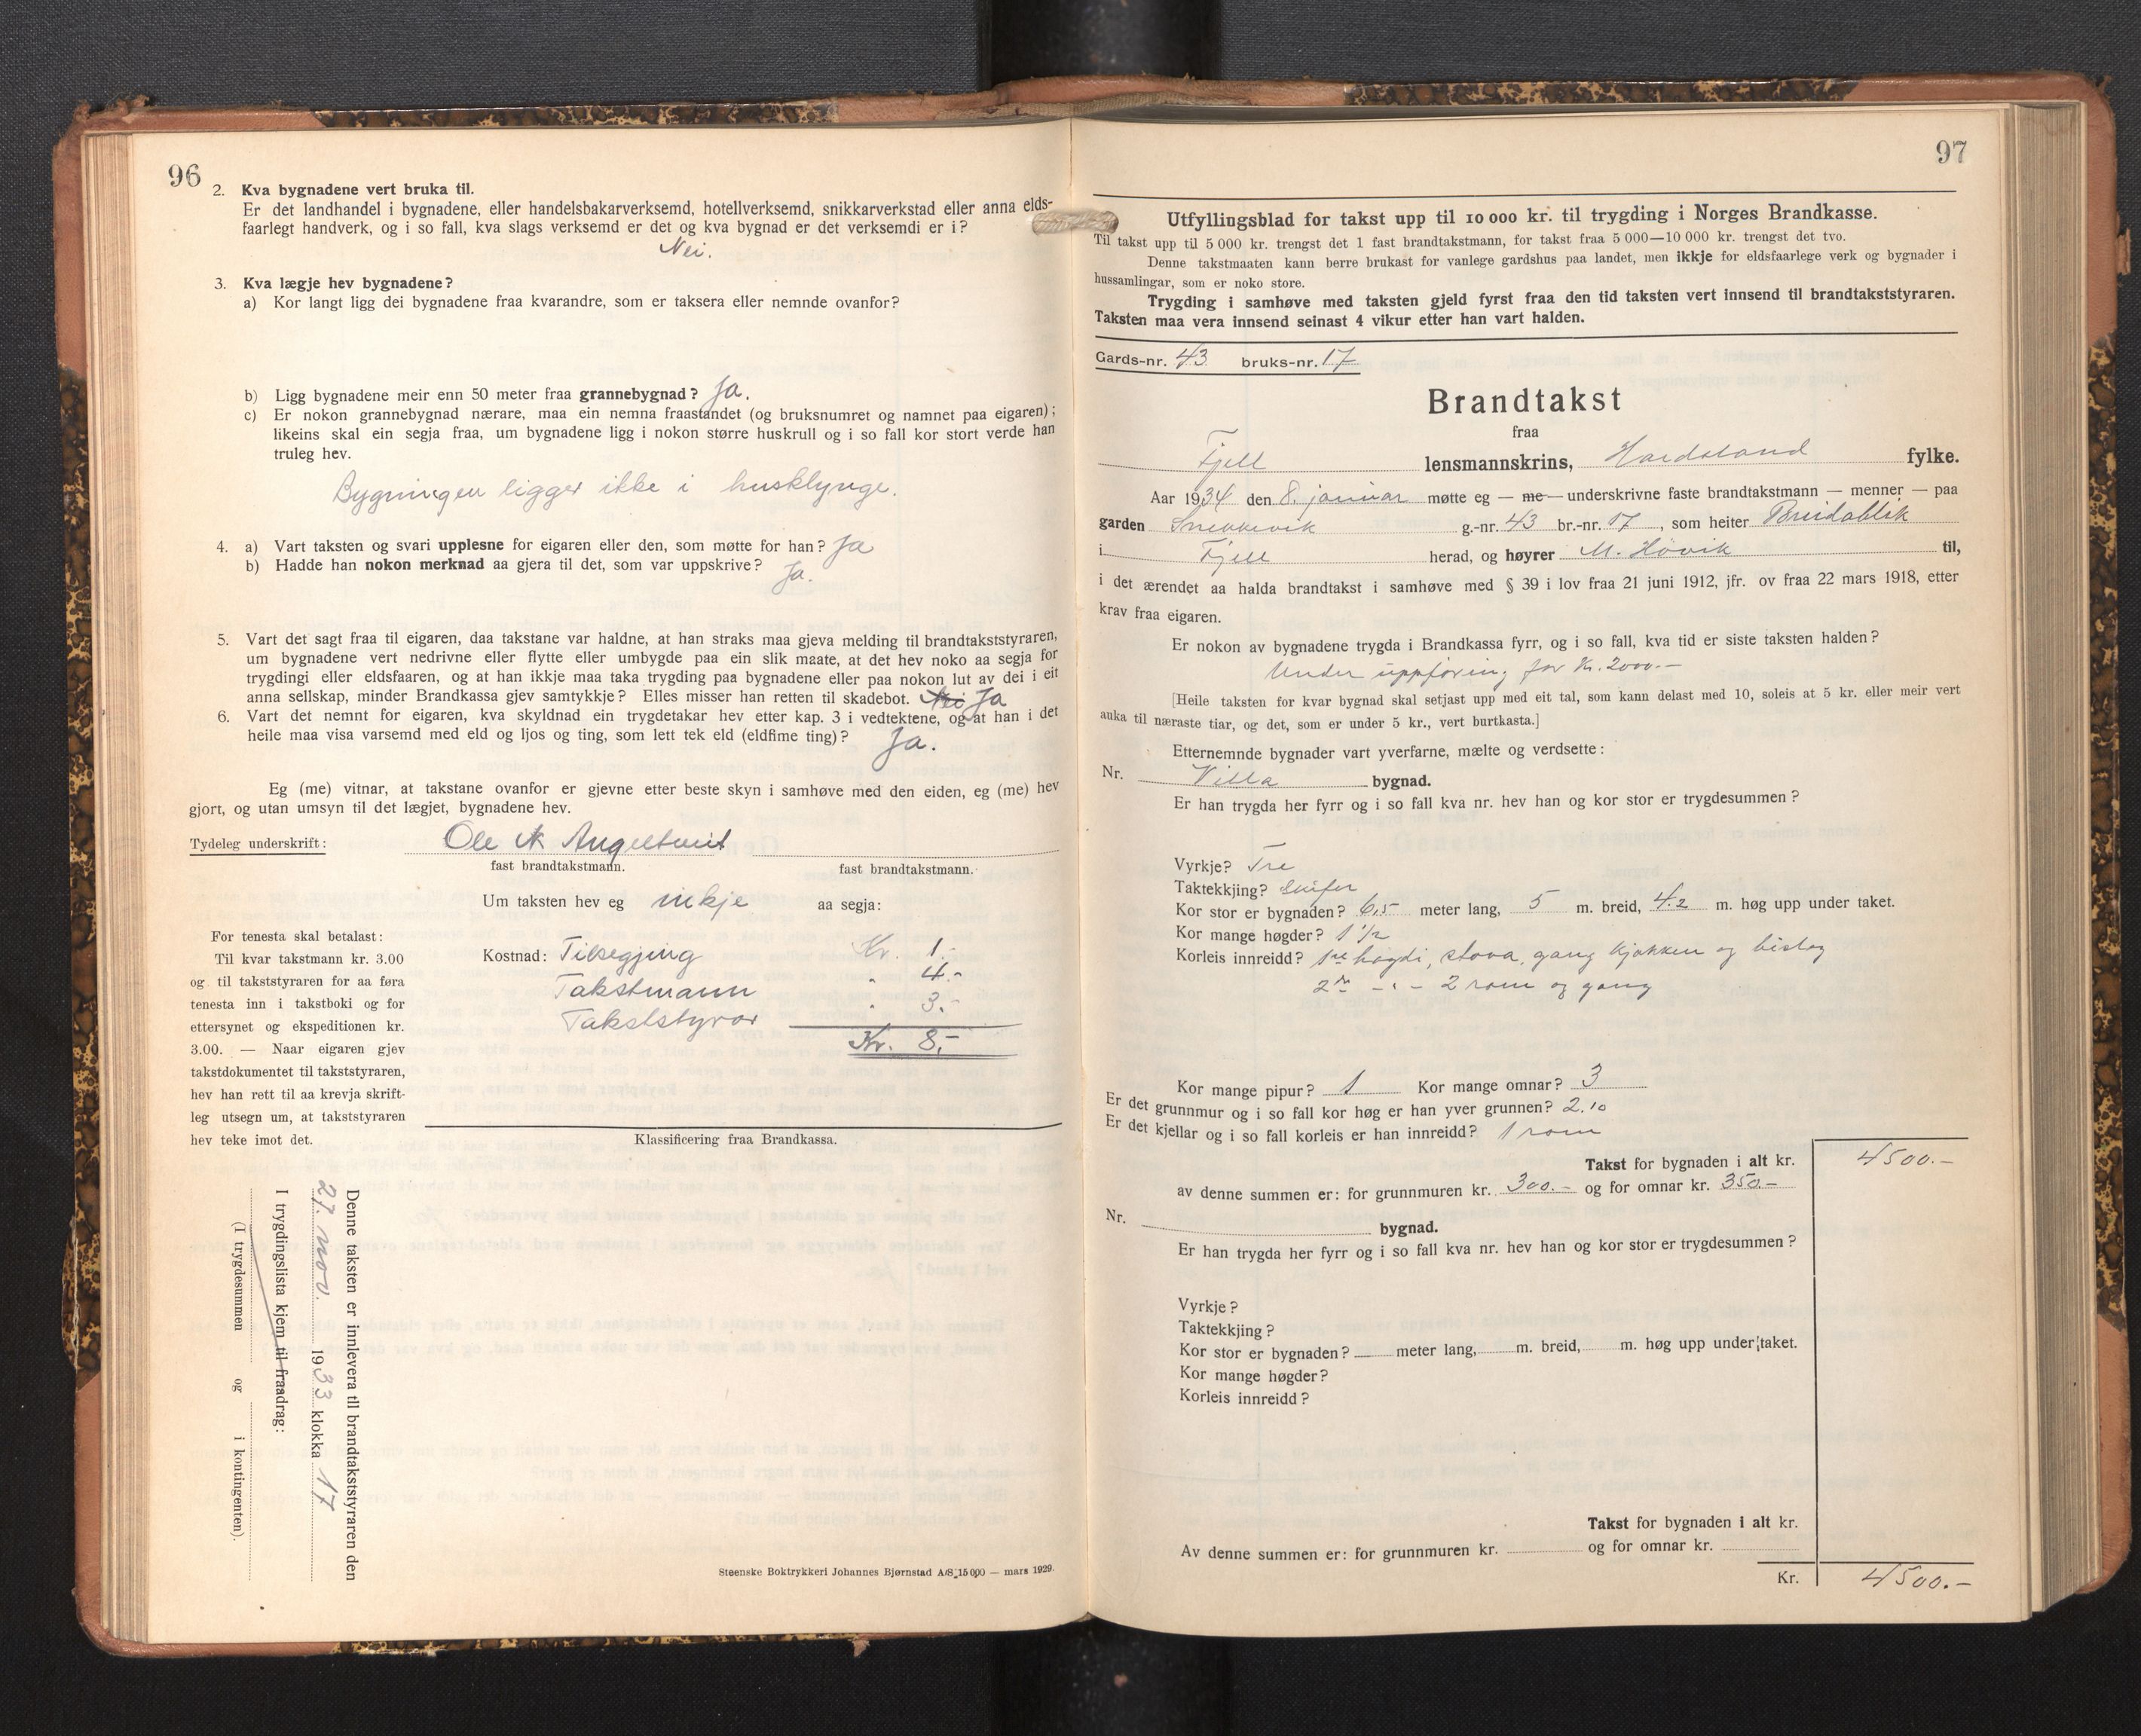 96
2. Kva bygnadene vert bruka til.
Er det landhandel i bygnadene, eller handelsbakarverksemd, hotellverksemd, snikkarverkstad eller anna elds-
faarlegt handverk, og i so fall, kva slags verksemd er det og kva bygnad er det verksemdi er i?
Nei.
3. Kva lægje hev bygnadene?
a) Kor langt ligg dei bygnadene fraa kvarandre, som er taksera eller nemnde ovanfor?
b) Ligg bygnadene meir enn 50 meter fraa grannebygnad? Ja.
c) Er nokon grannebygnad nærare, maa ein nemna fraastandet (og bruksnumret og namnet paa eigaren);
likeins skal ein segja fraa, um bygnadene ligg i nokon større huskrull og i so fall kor stort verde han
truleg hev.
Bygningen ligger ikke i husklynge.
4. a) Vart taksten og svari upplesne for eigaren eller den, som møtte for han? Ja
b) Hadde han nokon merknad aa gjera til det, som var uppskrive? Ja.
5. Vart det sagt fraa til eigaren, daa takstane var haldne, at han straks maa gjeva melding til brandtakststyraren,
um bygnadene vert nedrivne eller flytte eller umbygde paa ein slik maate, at det hev noko aa segja for
trygdingi eller eldsfaaren, og at han ikkje maa taka trygding paa bygnadene eller paa nokon lut av dei i eit
anna sellskap, minder Brandkassa gjev samtykkje? Elles misser han retten til skadebot. Nei Ja
6. Vart det nemnt for eigaren, kva skyldnad ein trygdetakar hev etter kap. 3 i vedtektene, og at han i det
heile maa visa varsemd med eld og ljos og ting, som lett tek eld (eldfime ting)? Ja.
Eg (me) vitnar, at takstane ovanfor er gjevne etter beste skyn i samhøve med den eiden, eg (me) hev
gjort, og utan umsyn til det lægjet, bygnadene hev.
Tydeleg underskrift: Ole N Angeltveit
fast brandtakstmann. fast brandtakstmann.
Um taksten hev eg inkje aa segja:
For tenesta skal betalast:
Til kvar takstmann kr. 3.00
og til takststyraren for aa føra
tenesta inn i takstboki og for
ettersynet og ekspeditionen kr.
3.00. — Naar eigaren gjev
takstdokumentet til takststyraren,
hev han rett til aa krevja skrift-
leg utsegn um, at takststyraren
hev teke imot det.
Kostnad: Tilsegjing Kr. 1.-
Takstmann " 4.-
Takststyrar " 3.-
Kr. 8.-
Klassificering fraa Brandkassa.
Denne taksten er innlevera til brandtakststyraren den
27. nov. 1933 klokka 17
I trygdingslista kjem til fraadrag:
(I trygdesummen og i kontingenten).
Steenske Boktrykkeri Johannes Bjørnstad A/S 15 000 — mars 1929.
97
Utfyllingsblad for takst upp til 10 000 kr. til trygding i Norges Brandkasse.
Til takst upp til 5 000 kr. trengst det 1 fast brandtakstmann, for takst fraa 5 000—10 000 kr. trengst det tvo.
Denne takstmaaten kann berre brukast for vanlege gardshus paa landet, men ikkje for eldsfaarlege verk og bygnader i
hussamlingar, som er noko store.
Trygding i samhøve med taksten gjeld fyrst fraa den tid taksten vert innsend til brandtakststyraren.
Taksten maa vera innsend seinast 4 vikur etter han vart halden.
Gards-nr. 43 bruks-nr. 17
Brandtakst
fraa
Fjell lensmannskrins, Hordaland fylke.
Aar 1934 den 8. januar møtte eg — me — underskrivne faste brandtakstmann — menner — paa
garden Snekkevik g.-nr. 43 br.-nr. 17, som heiter Breidablik
i Fjell herad, og høyrer M. Høvik til,
i det ærendet aa halda brandtakst i samhøve med § 39 i lov fraa 21 juni 1912, jfr. ov fraa 22 mars 1918, etter
krav fraa eigaren.
Er nokon av bygnadene trygda i Brandkassa fyrr, og i so fall, kva tid er siste taksten halden?
Under uppføring for kr. 2000.-
[Heile taksten for kvar bygnad skal setjast upp med eit tal, som kann delast med 10, soleis at 5 kr. eller meir vert
auka til næraste tiar, og det, som er under 5 kr., vert burtkasta.]
Etternemnde bygnader vart yverfarne, mælte og verdsette:
Nr. Villa bygnad.
Er han trygda her fyrr og i so fall kva nr. hev han og kor stor er trygdesummen?
Vyrkje? Tre
Taktekkjing? Skifer
Kor stor er bygnaden? 6,5 meter lang, 5 m. breid, 4.2 m. høg upp under taket.
Kor mange høgder? 1 1/2
Korleis innreidd? 1re høgdi, stova, gang kjøkken og bislag
2re - " - 2 rom og gang
Kor mange pipur? 1 Kor mange omnar? 3
Er det grunnmur og i so fall kor høg er han yver grunnen? 2.10
Er det kjellar og i so fall korleis er han innreidd? 1 rom
Takst for bygnaden i alt kr. 4500.-
av denne summen er: for grunnmuren kr. 300.- og for omnar kr. 350.-
Nr. bygnad.
Er han trygda her fyrr og i so fall kva nr. hev han og kor stor er trygdesummen?
Vyrkje?
Taktekkjing?
Kor stor er bygnaden? meter lang, m. breid, m. høg upp under taket.
Kor mange høgder?
Korleis innreidd?
Takst for bygnaden i alt kr.
Av denne summen er: for grunnmuren kr. og for omnar kr.
Kr. 4500.-